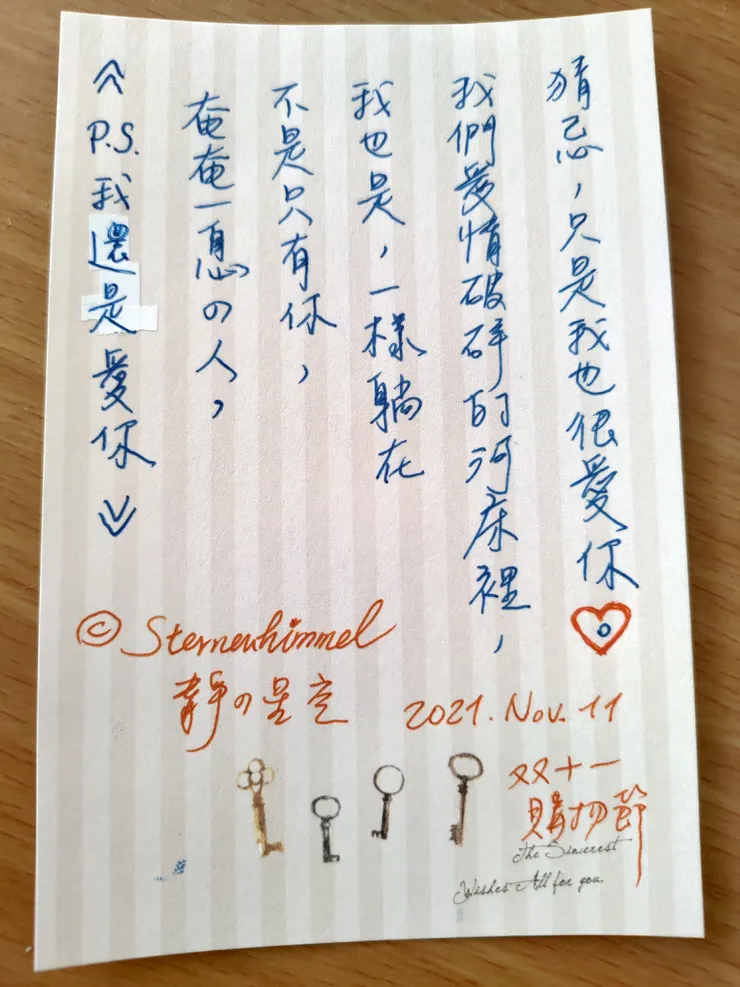 猜忌，只是我也很愛你。
我們愛情破碎的河床裡，
我也是，一樣躺在
不是只有你，
奄奄一息の人，
《P.S.我還是愛你》
© Sternenhimmel
靜の星空
2021.Nov.11
双十一
購物節
The Sincerest
Wishes All for you